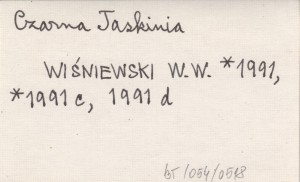 Czarna Jaskinia
WIŚNIEWSKI W.W. *1991,
*1991 c, 1991 d